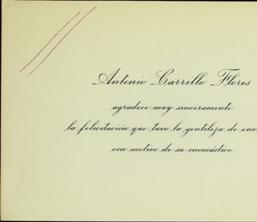 Antonio Carrillo Flores
agradece muy sinceramente
la felicitación que tuvo la gentileza de
con motivo de su onomástico.